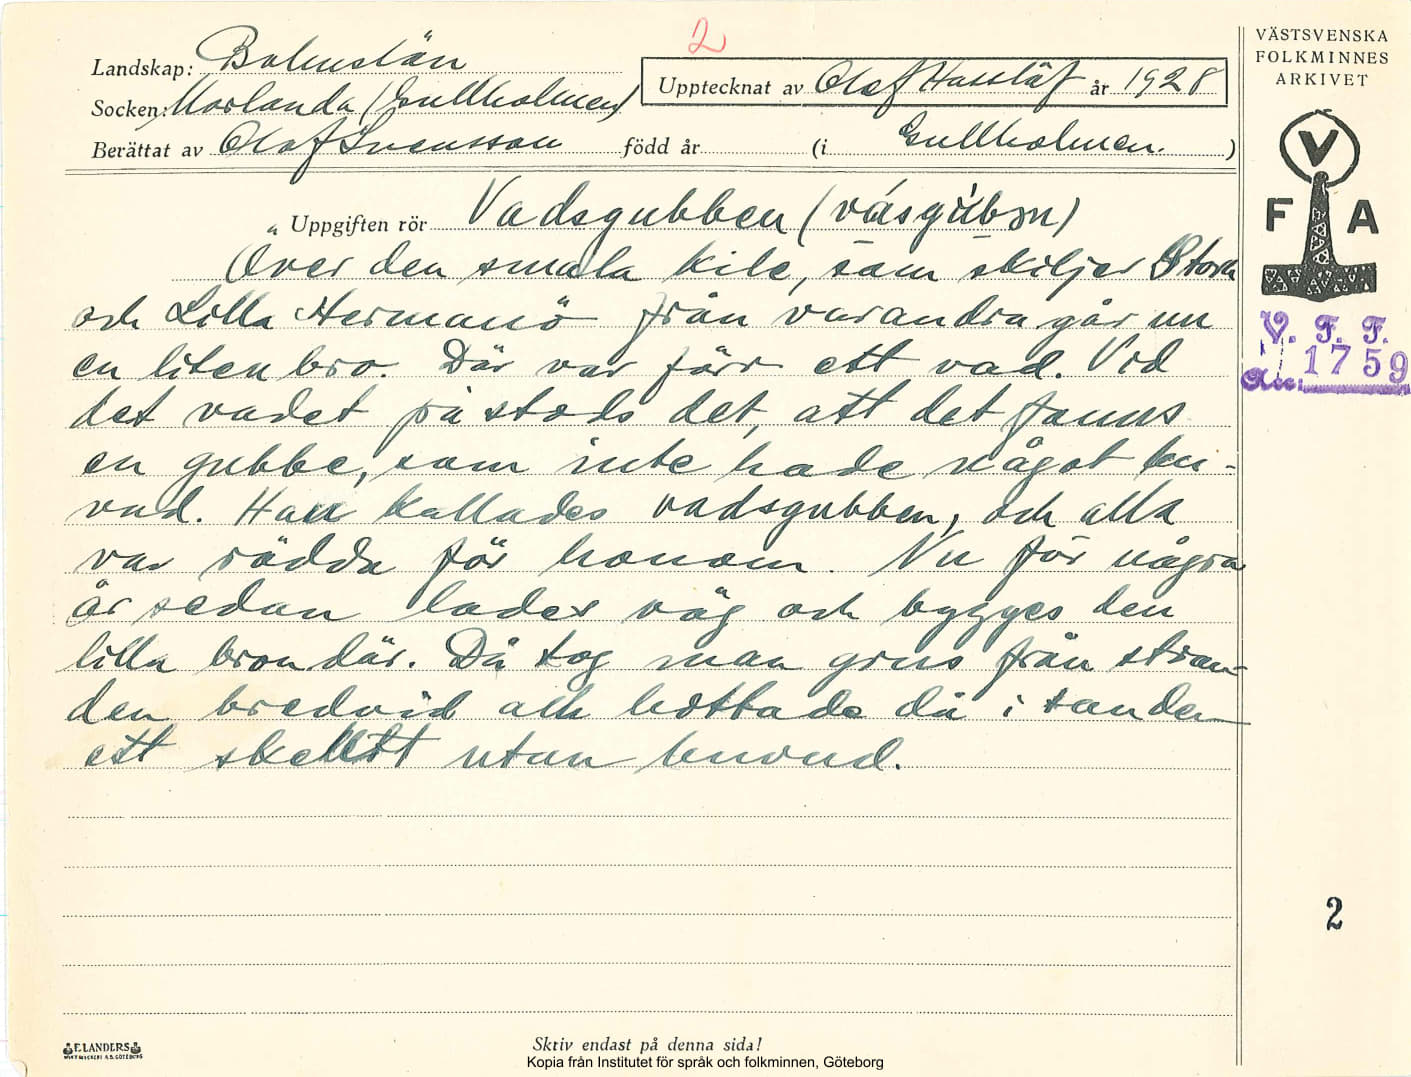 2
Landskap: Bohuslän
Socken: Morlanda (Gullholmen)
Upptecknat av Olof Hasslöf år 1928
Berättat av Olof Svensson född år (i Gullholmen.)
Uppgiften rör Vadsgubben (våsgúbən)
Över den smala kile, som skiljer Stora
och Lilla Hermanö från varandra går nu
en liten bro. Där var förr ett vad. Vid
det vadet påstods det, att det fanns
en gubbe, som inte hade något hu-
vud. Han kallades vadsgubben, och alla
var rädda för honom. Nu för några
år sedan lades väg och bygges den
lilla bron där. Då tog man grus från stran-
den bredvid och hottade då i sanden
ett skelett utan huvud.
VÄSTSVENSKA
FOLKMINNES
ARKIVET
V
F A
V. F. F.
1759
2
F. LANDERS
Skriv endast på denna sida!
Kopia från Institutet för språk och folkminnen, Göteborg